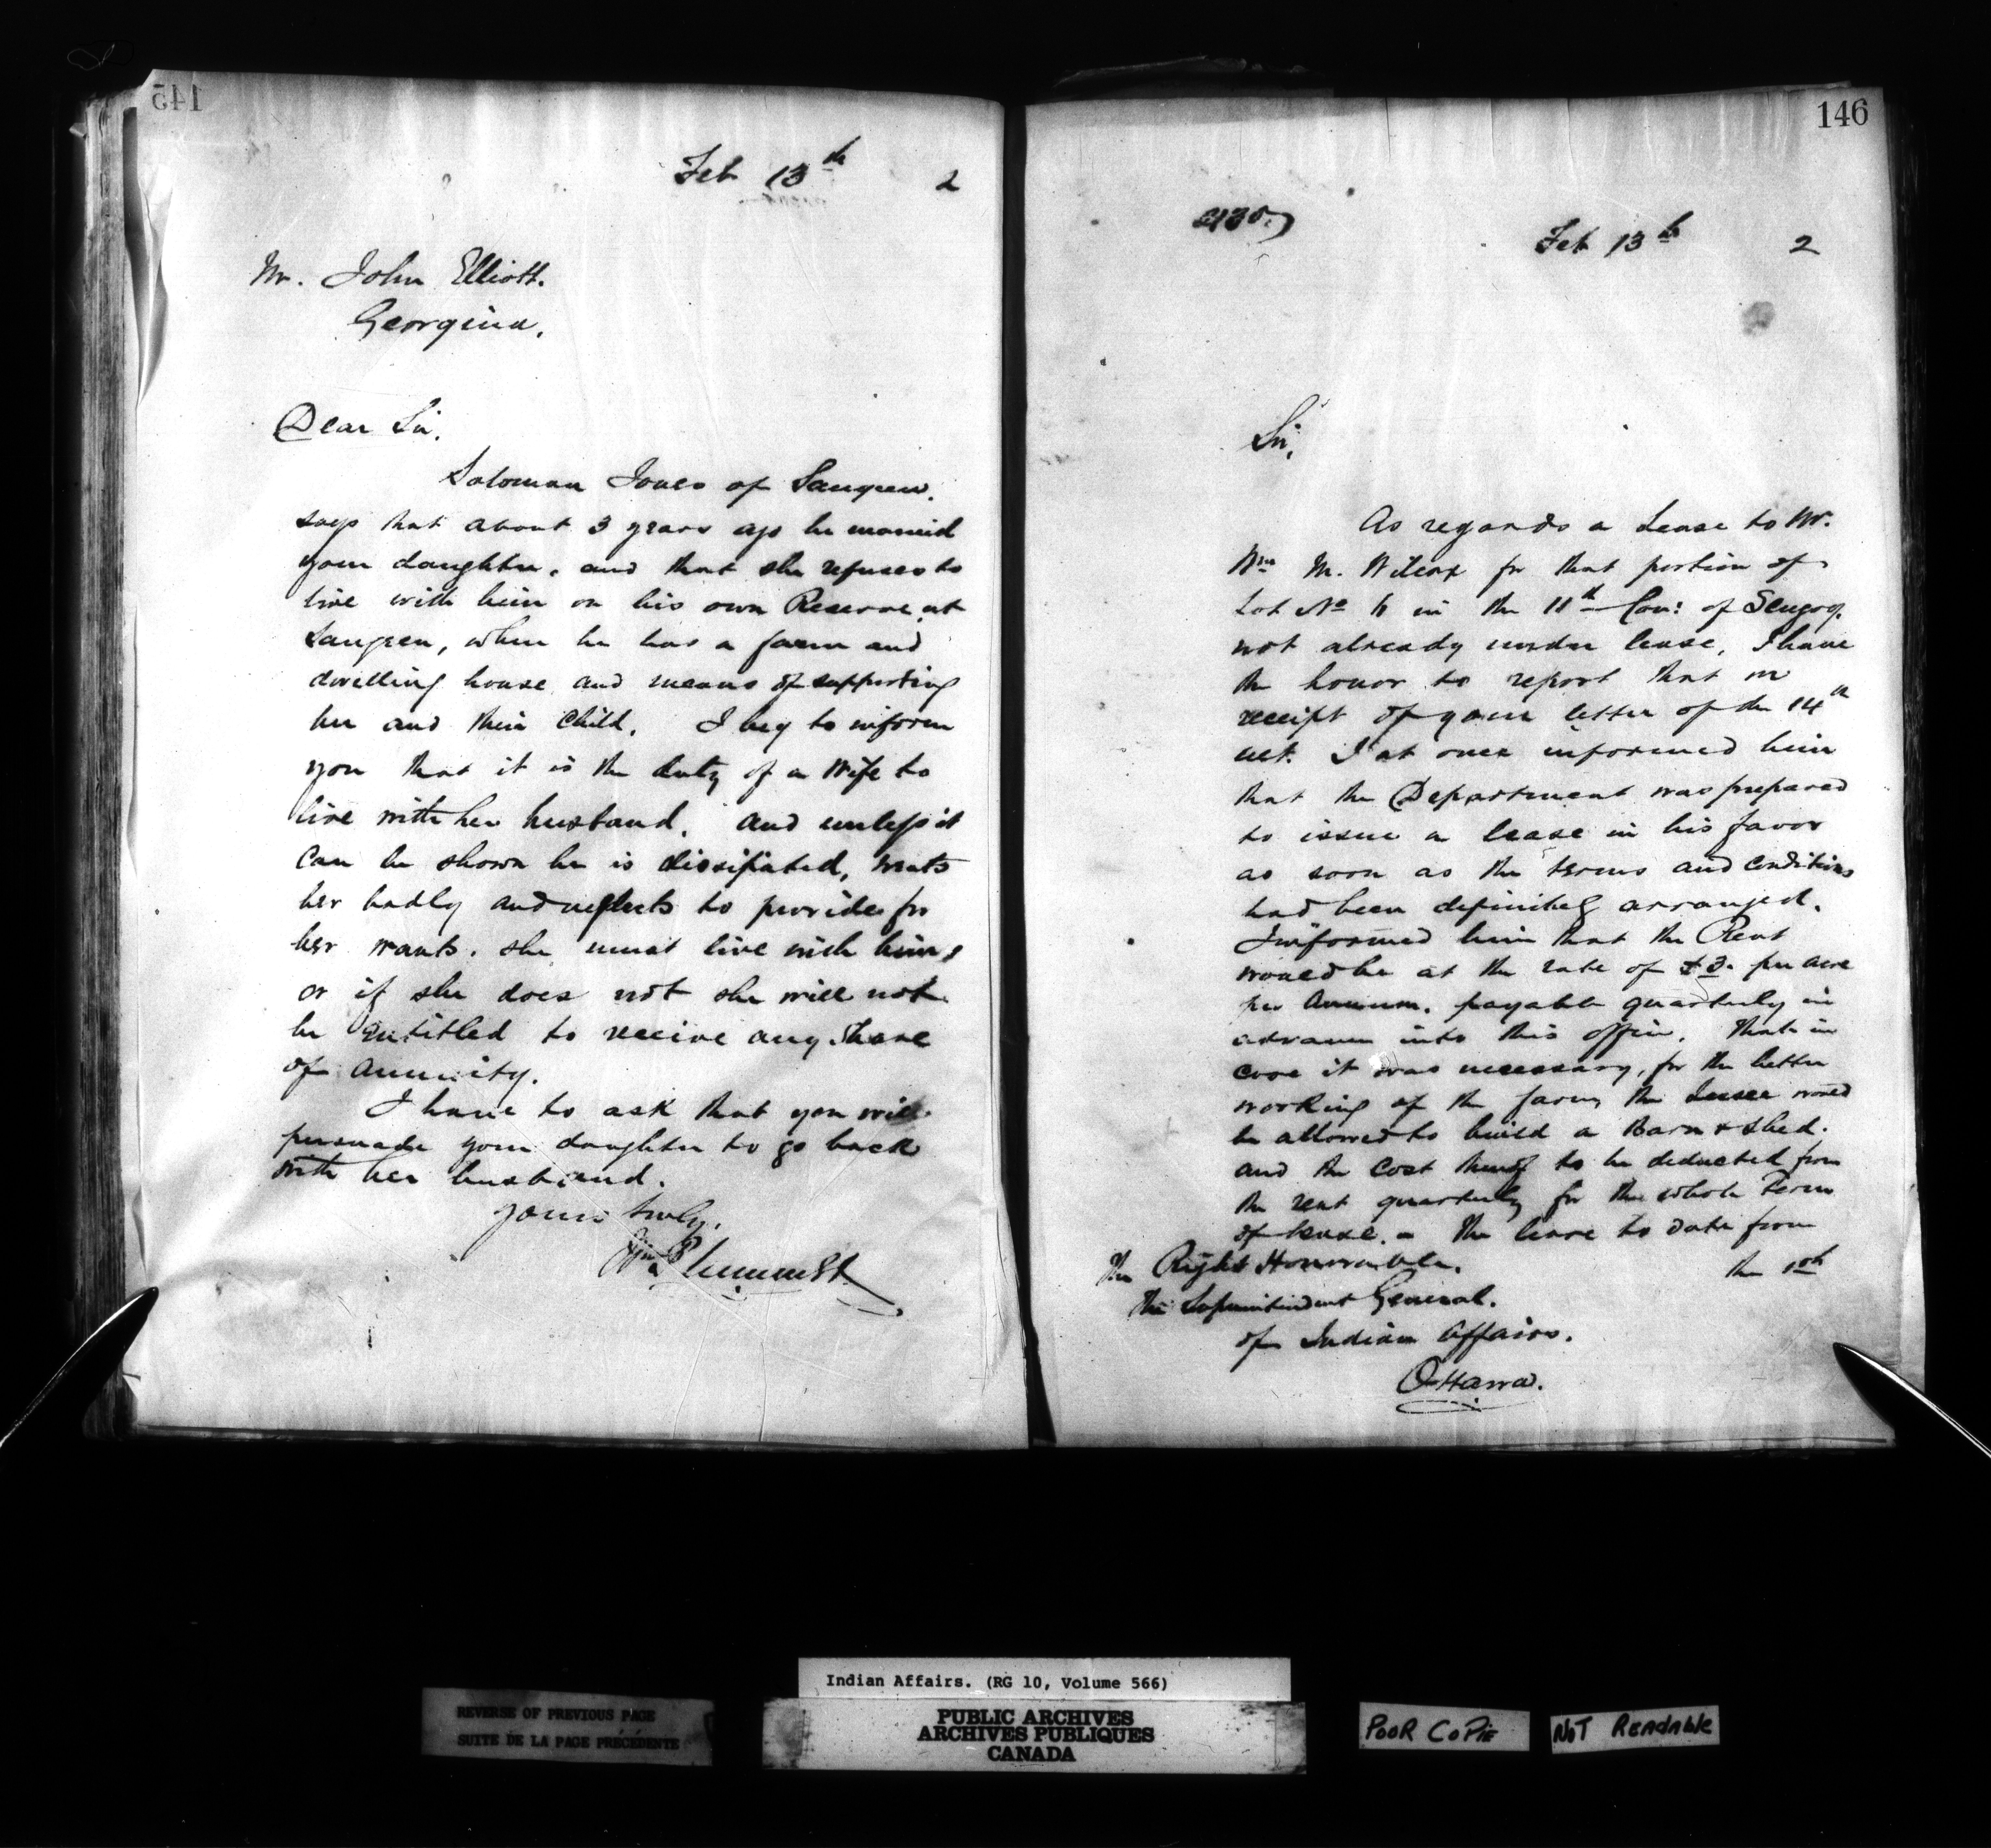 145
Feb 13th 2
Mr. John Elliott.
Georgina.
Dear Sir.
Solomon Jones of Saugeen.
says that about 3 years ago he married
your daughter. and that she refuses to
live with him on his own Reserve at
Saugeen, where he has a farm and
dwelling house and means of supporting
her and their child. I beg to inform
you that it is the duty of a Wife to
live with her husband. and unless it
can be shown he is dissipated, treats
her badly and neglects to provide for
her wants. she must live with him,
or if she does not she will not
be entitled to receive any share
of annuity.
I have to ask that you will
persuade your daughter to go back
with her husband.
Yours truly.
Wm Plummer
146
Feb 13th 2
Sir,
As regards a Lease to Mr.
Wm M. Wilcox for that portion of
Lot No 6 in the 11th Con: of Scugog.
not already under lease, I have
the honor to report that on
receipt of your letter of the 14th
ult. I at once informed him
that the Department was prepared
to issue a lease in his favor
as soon as the terms and conditions
had been definitely arranged.
I informed him that the Rent
would be at the rate of $3. per acre
per Annum. payable quarterly in
advance into this office. That in
case it was necessary, for the better
working of the farm, the Lessee would
be allowed to build a Barn & shed.
and the cost thereof to be deducted from
the rent quarterly for the whole Term
of lease. - The lease to date from
the 1st
The Right Honorable.
The Superintendent General.
of Indian Affairs.
Ottawa.
Indian Affairs. (RG 10, Volume 566)
REVERSE OF PREVIOUS PAGE
SUITE DE LA PAGE PRÉCÉDENTE
PUBLIC ARCHIVES
ARCHIVES PUBLIQUES
CANADA
POOR COPIE
NOT READABLE